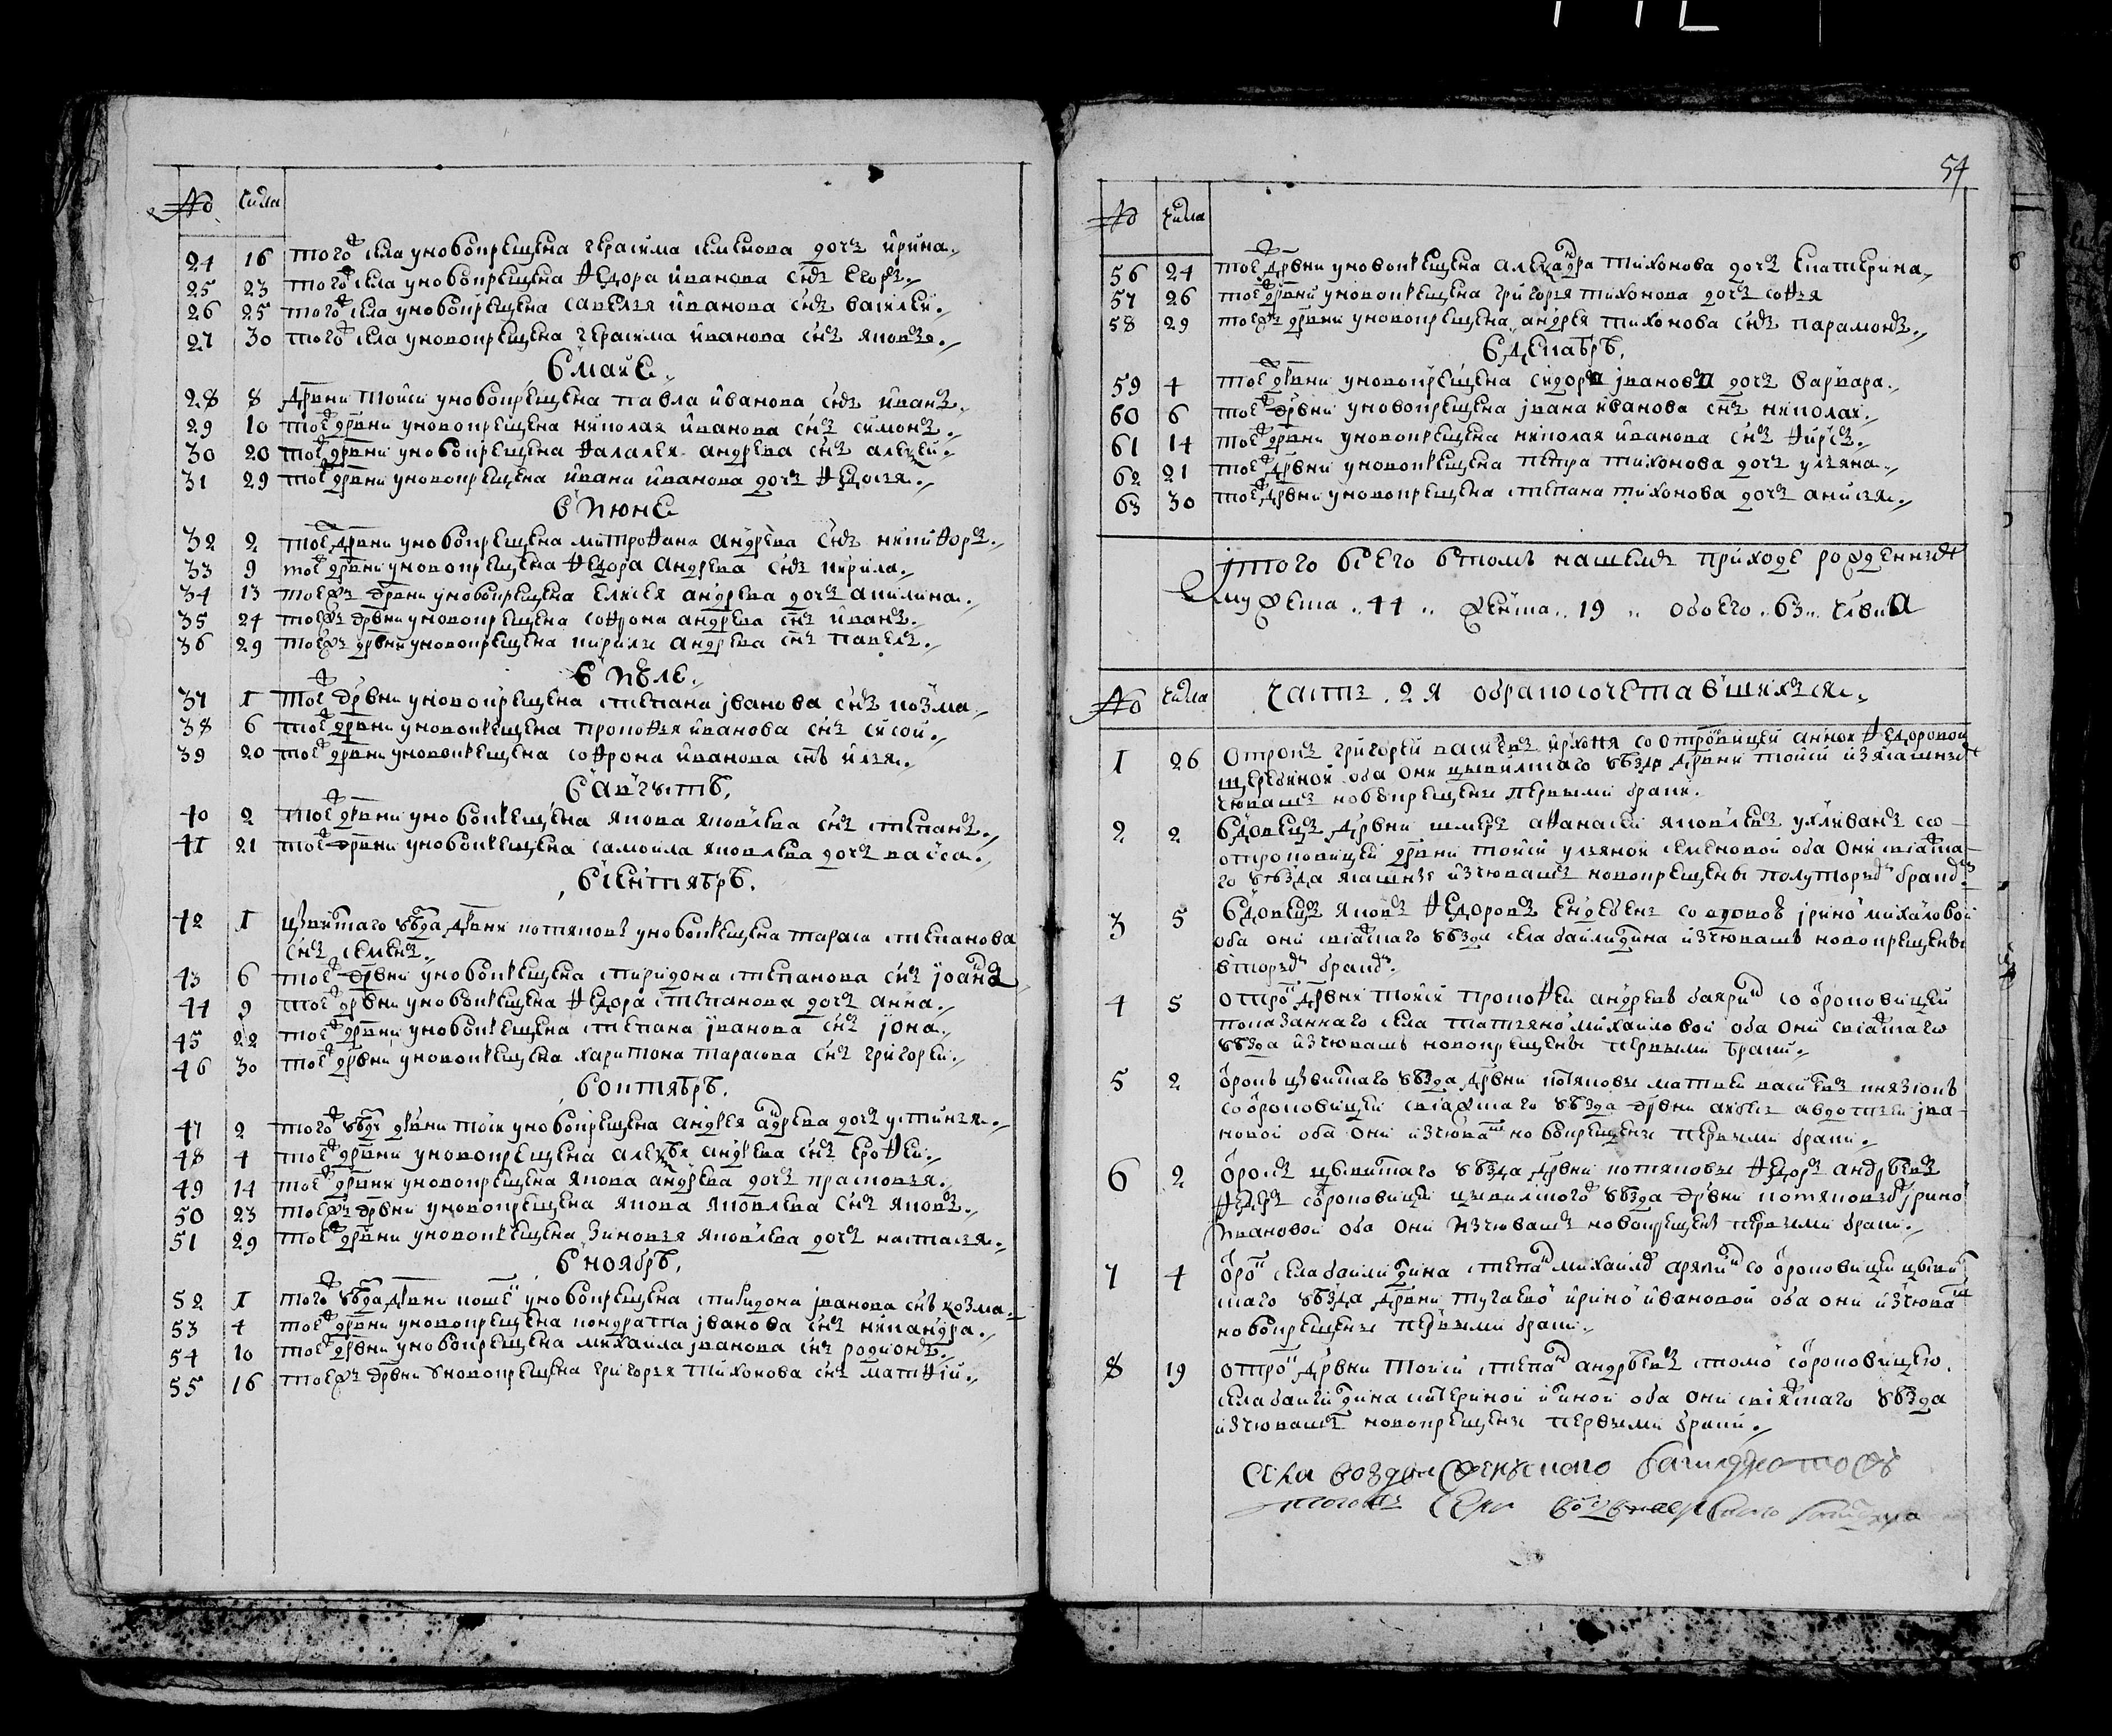 № числа
24 16 тогож села уновокрещена герасима семенова дочь ирина
25 23 тогож села уновокрещена федора иванова снъ егоръ
26 25 тогож села уновокрещена савелья иванова снъ василеи
27 30 тогож села уновокрещена герасима иванова снъ яковъ
в маие
28 8 дрвни тойси уновокрещена павла иванова снъ иванъ
29 10 тоеж дрвни уновокрещена николая иванова снъ симонъ
30 20 тоеж дрвни уновокрещена фалалея андрева снъ алеѯей
31 29 тоеж дрвни уновокрещена ивана иванова дочь федосья
в июне
32 2 тоеж дрвни уновокрещена митрофана андрева снъ никифоръ
33 9 тоеж дрвни уновокрещена федора андрева снъ кирила
34 13 тоежъ дрвни уновокрещена елисея андрева дочь акилина
35 24 тоежъ дрвни уновокрещена софрона андрева снъ иванъ
36 29 тоежъ дрвни уновокрещена кирилы андрева снъ павелъ
в иꙋле
37 1 тоеж дрвни уновокрещена степана їванова снъ козма
38 6 тоеж дрвни уновокрещена прокофья иванова снъ сисой
39 20 тоеж дрвни уновокрещена софрона иванова снъ илья
в авгꙋстѣ
40 2 тоеж дрвни уновокрещена якова яковлева снъ степанъ
41 21 тоеж дрвни уновокрещена самоила яковлева дочь васса
в сентябрѣ
42 1 ꙋѣзда дрвни уновокрещена тараса степанова
снъ семенъ
43 6 тоеж дрвни уновокрещена спиридона степанова снъ їоанъ
44 9 тоеж дрвни уновокрещена федора степанова дочь анна
45 22 тоеж дрвни уновокрещена степана їванова снъ їона
46 30 тоеж дрвни уновокрещена харитона тарасова снъ григорей
в октябрѣ
47 2 тогож ꙋѣзда дрвни тойси уновокрещена андрея адрева дочь устинья
48 4 тоеж дрвни уновокрещена алеѯѣя андрева снъ ерофеи
49 14 тоеж дрвни уновокрещена якова андрева дочь прасковья
50 23 тоежъ дрвни уновокрещена якова яковлева снъ яковъ
51 29 тоеж дрвни уновокрещена зиновья яковлева дочь настасья
в ноябрѣ
52 1 тогож ꙋѣзда дрвни уновокрещена спиридона їванова снъ козма
53 4 тоеж дрвни уновокрещена кондратпа їванова снъ никандра
54 10 тоеж дрвни уновокрещена михаила їванова снъ родионъ
55 16 тоежъ дрвни ꙋновокрещена григорья тихонова снъ матфїй
54
№ числа
56 24 тоеж дрвни уновокрещена алеѯадра тихонова дочь екатерина
57 26 тоеж дрвни уновокрещена григорья тихонова дочь софья
58 29 тоежъ дрвни уновокрещена андрея тихонова снъ парамонъ
в декабрѣ
59 4 тоеж дрвни уновокрещена сидора їванова дочь варвара
60 6 тоеж дрвни уновокрещена ївана иванова снъ николай
61 14 тоеж дрвни уновокрещена николая иванова снъ фирсъ
62 21 тоеж дрвни уновокрещена петра тихонова дочь ульяна
63 30 тоеж дрвни уновокрещена степана тихонова дочь анисья
їтого всего втомъ нашемъ приходе рожденныхъ
мужеска 44 женска 19 обоего 63 члвка
№ числа часть 2я обракосочетавшихъся
1 26 Отрокъ григорей васильевъ со отроковицей анной федоровой
оба они цывилскаго ꙋѣзда дрвни тойси изясашныхъ
чювашъ новокрещены первымъ бракомъ
2 2 вдовецъ дрвни афанасеи яковлевъ со
отроковицей дрвни тойси ульяной семеновой оба они свіажска
го ꙋѣзда ясашные изчювашъ новокрещены полуторымъ бракомъ
3 5 вдовецъ яковъ федоровъ со вдовой їриной михаловой
оба они свіажскаго ꙋѣзда села баилидина изчювашъ новокрещены
вторымъ бракомъ
4 5 отрок дрвни тойси прокофеи андревъ со ороковицей
показаннаго села татьяной михаиловой оба они свіажскаго
ꙋѣзда изчювашъ новокрещены первыми браки
5 2 орокъ ꙋѣзда дрвни матвеи васильевъ
со ороковицей свіажскаго ꙋѣзда дрвни авдотьеи їва
новой оба они изчювашъ новокрещены первыми браки
6 2 орокъ ꙋѣзда дрвни федоръ андрѣевъ
со ороковицей цывилскогож ꙋѣзда дрвни їриной
ивановой оба они изчювашъ новокрещены первыми браки
7 4 орок села баилидина степан михаилов со ороковицей цывил
скаго ꙋѣзда дрвни тугаевой ириной ивановой оба они изчюваш
новокрещены первыми браки
8 19 отрок дрвни тойси степан андрѣевъ стоюж сороковицею
села баилидина оба они свіяжскаго ꙋѣзда
изчювашъ новокрещены первыми браки
села воздвиженскаго
тогожъ села